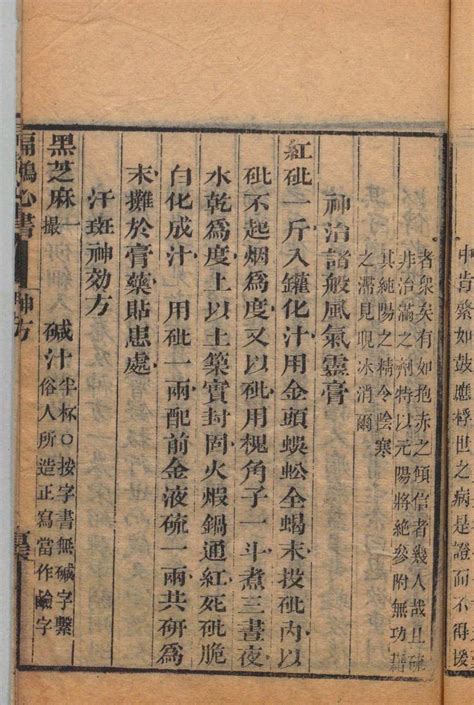 是證而不得後
者衆矣有如抱赤之傾信者幾人哉且硫
非治滿之劑特以元陽將絕參附無功藉
其純陽之精令陰寒
之滯見晛冰消爾
神治諸般風氣靈膏
紅砒一斤入罐化汁用金頭蜈蚣全蝎末投砒內以
砒不起烟爲度又以砒用槐角子一斗煮三晝夜
水乾爲度上以土築實封固火煆鍋通紅死砒脆
白化成汁用砒一兩配前金液硫一兩共研爲
末攤於膏藥貼患處
汗斑神効方
黑芝麻一撮 碱汁半杯○按字書無碱字繫俗人所造正寫當作鹼字
扁鵲心書 神方